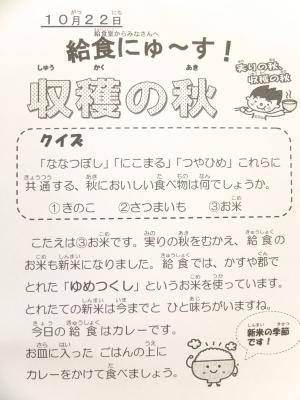 10月22日
給食室からみなさんへ
給食にゅ～す！
実りの秋、
収穫の秋
収穫の秋
クイズ
「ななつぼし」「にこまる」「つやひめ」これらに
共通する、秋においしい食べ物は何でしょうか。
①きのこ　②さつまいも　③お米
こたえは③お米です。実りの秋をむかえ、給食の
お米も新米になりました。給食では、かすや郡で
とれた「ゆめつくし」というお米を使っています。
とれたての新米は今までと ひと味ちがいますね。
今日の給食はカレーです。
お皿に入った ごはんの上に
カレーをかけて食べましょう。
新米の季節
です！